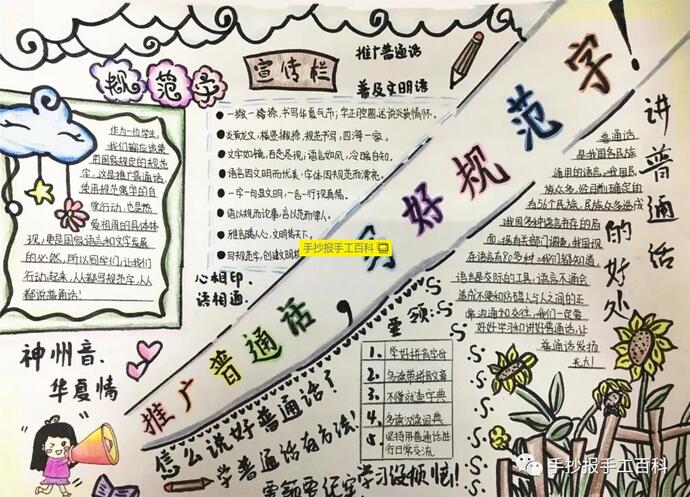 规范字
作为一份学生,
我们都应该使
用国家规定的规范
字,这是推广普通话,
使用规范汉字的自
觉行动,也是热
爱祖国的具体体
现,更是国家语言和文字发展
的必然,所以同学们,让我们
行动起来,人人都写规范字,人人
都说普通话!
宣传栏
推广普通话
普及文明语
一撇一捺捺,书写华夏气节;字正腔圆,述说炎黄情怀。
炎黄龙文,横竖撇捺,规范书写,四海一家。
文字如镜,百态尽现;语言如风,冷暖自知。
语言因文明而优美,字体因规范而漂亮。
一字一句显文明,一言一行现真情。
语以规而论事,言以范而律人。
雅言传人心,文明赞天下。
写规范字,创建文明校
心相印,
语相通
推广普通话,写好规范字!
手抄报手工百科
讲普通话的好处
普通话
是我国各民族
通用的语言。我国民
族众多,经召勤确定的
有56个民族,民族众多造成
我国多种语言并存的局
面,据有关部门调查,我国现
在语言有80多种。我们都知道,
语言是交际的工具,语言不通会
造成不便和妨碍人与人之间的正
常沟通和交往,我们一定要
好好学习和讲好普通话,让
普通话发扬
光大!
神州音,
华夏情
要领:
1. 学好拼音字母
2. 多读带拼音文章
3. 不懂就查字典
4. 多读汉语词典
5 坚持用普通话进
行日常交流
怎么说好普通话了
学普通话有方法!
要领要记牢
学习没烦恼!
手抄报手工百科